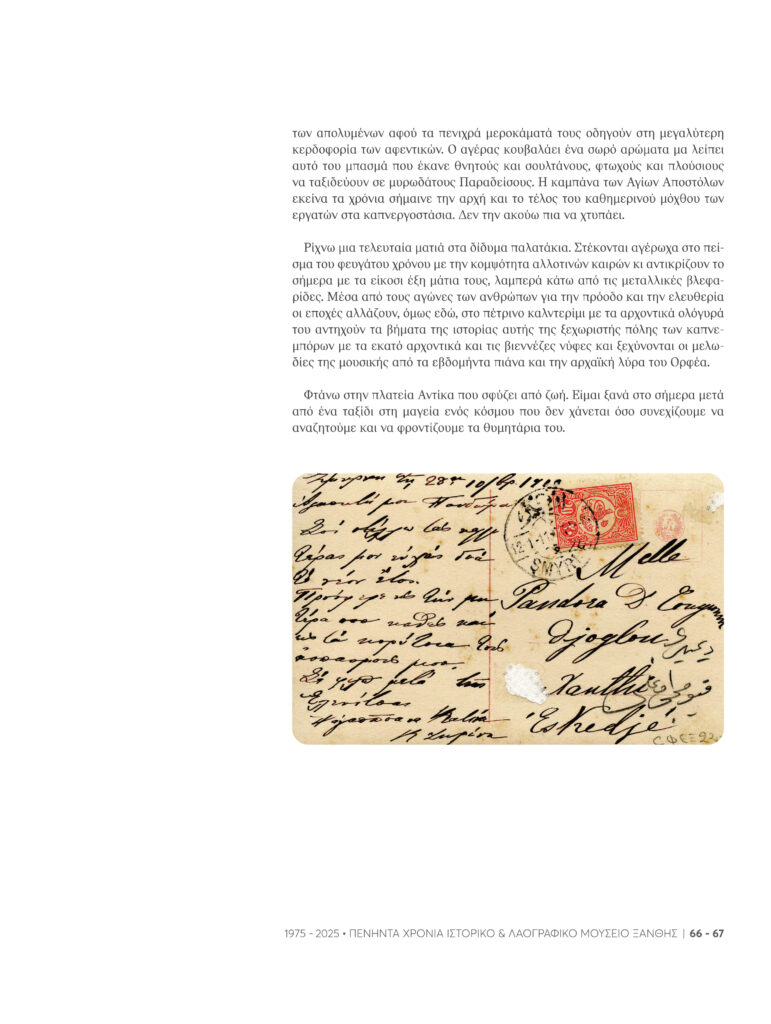 των απολυμένων αφού τα πενιχρά μεροκάματά τους οδηγούν στη μεγαλύτερη
κερδοφορία των αφεντικών. Ο αγέρας κουβαλάει ένα σωρό αρώματα μα λείπει
αυτό του μπασμά που έκανε θνητούς και σουλτάνους, φτωχούς και πλούσιους
να ταξιδεύουν σε μυρωδάτους Παραδείσους. Η καμπάνα των Αγίων Αποστόλων
εκείνα τα χρόνια σήμαινε την αρχή και το τέλος του καθημερινού μόχθου των
εργατών στα καπνεργοστάσια. Δεν την ακούω πια να χτυπάει.
Ρίχνω μια τελευταία ματιά στα δίδυμα παλατάκια. Στέκονται αγέρωχα στο πεί-
σμα του φευγάτου χρόνου με την κομψότητα αλλοτινών καιρών κι αντικρίζουν το
σήμερα με τα είκοσι έξη μάτια τους, λαμπερά κάτω από τις μεταλλικές βλεφα-
ρίδες. Μέσα από τους αγώνες των ανθρώπων για την πρόοδο και την ελευθερία
οι εποχές αλλάζουν, όμως εδώ, στο πέτρινο καλντερίμι με τα αρχοντικά ολόγυρά
του αντηχούν τα βήματα της ιστορίας αυτής της ξεχωριστής πόλης των καπνε-
μπόρων με τα εκατό αρχοντικά και τις βιεννέζες νύφες και ξεχύνονται οι μελω-
δίες της μουσικής από τα εβδομήντα πιάνα και την αρχαϊκή λύρα του Ορφέα.
Φτάνω στην πλατεία Αντίκα που σφύζει από ζωή. Είμαι ξανά στο σήμερα μετά
από ένα ταξίδι στη μαγεία ενός κόσμου που δεν χάνεται όσο συνεχίζουμε να
αναζητούμε και να φροντίζουμε τα θυμητάρια του.
Σμύρνη τη 28
Αγαπητή μου
Σοί στέλλω τάς
τέρας μου εὐχάς διά
τό νέον ἔτος.
τήν μη
τέρα σου καθώς καί
τά κορίτσια τούς
ἀσπασμούς μου.
μετά τῆς
Ἑλενίτσας
SMYR
Melle
Pandora D.
djoglou
Xanthi
Eskedjé
1975 - 2025 • ΠΕΝΗΝΤΑ ΧΡΟΝΙΑ ΙΣΤΟΡΙΚΟ & ΛΑΟΓΡΑΦΙΚΟ ΜΟΥΣΕΙΟ ΞΑΝΘΗΣ | 66 - 67